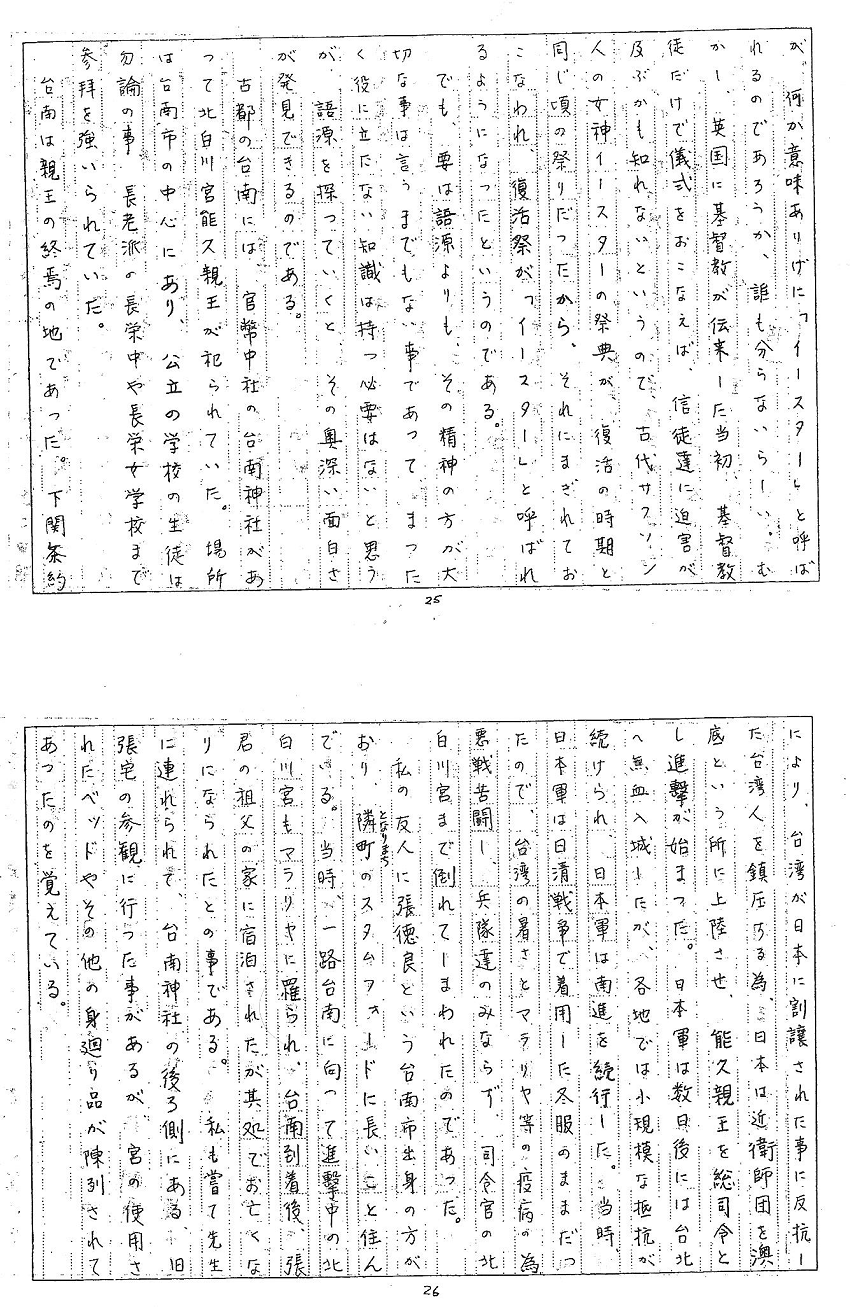 が、何か意味ありげに「イースター」と呼ば
れるのであろうか、誰も分らないらしい。む
かし、英国に基督教が伝来した当初、基督教
徒だけで儀式をおこなえば、信徒達に迫害が
及ぶかも知れないというので、古代サクソン
人の女神イースターの祭典が、復活の時期と
同じ頃の祭りだったから、それにまぎれてお
こなわれ、復活祭が「イースター」と呼ばれ
るようになったというのである。
でも、要は語源よりも、その精神の方が大
切な事は言うまでもない事であって、まった
く役に立たない知識は持つ必要はないと思う
が、語源を探っていくと、その奥深い面白さ
が発見できるのである。
古都の台南には、官幣中社の台南神社があ
って北白川宮能久親王が祀られていた。場所
は台南市の中心にあり、公立の学校の生徒は
勿論の事、長老派の長栄中や長栄女学校まで
参拝を強いられていた。
台南は親王の終焉の地であった。下関条約
25
により、台湾が日本に割譲された事に反抗し
た台湾人を鎮圧する為、日本は近衛師団を澳
底という所に上陸させ、能久親王を総司令と
し進撃が始まった。日本軍は数日後には台北
へ無血入城したが、各地では小規模な抵抗が
続けられ、日本軍は南進を続行した。当時、
日本軍は日清戦争で着用した冬服のままだっ
たので、台湾の暑さとマラリヤ等の疫病の為
悪戦苦闘し、兵隊達のみならず、司令官の北
白川宮まで倒れてしまわれたのであった。
私の友人に張徳良という台南市出身の方が
おり、隣町のスタムフォードに長いこと住ん
となりまち
でいる。当時、一路台南に向って進撃中の北
白川宮もマラリヤに罹られ、台南到着後、張
君の祖父の家に宿泊されたが其処でお亡くな
りになられたとの事である。私も嘗て先生
に連れられて、台南神社の後ろ側にある、旧
張宅の参観に行った事があるが、宮の使用さ
れたベッドやその他の身廻り品が陳列されて
あったのを覚えている。
26